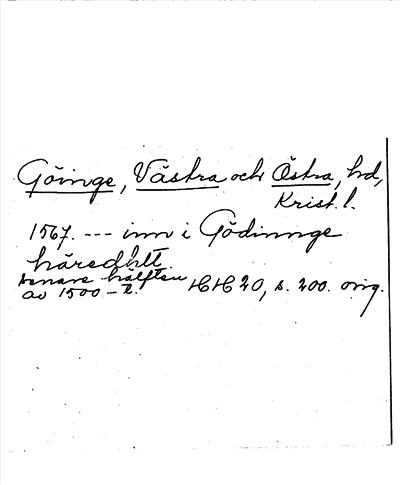 Göinge, Västra och Östra, hd,
Krist. l.
1567. --- inn i Gödinnge
häredhtt.
Senare hälften
av 1500-t. HH 20, s. 200. orig.